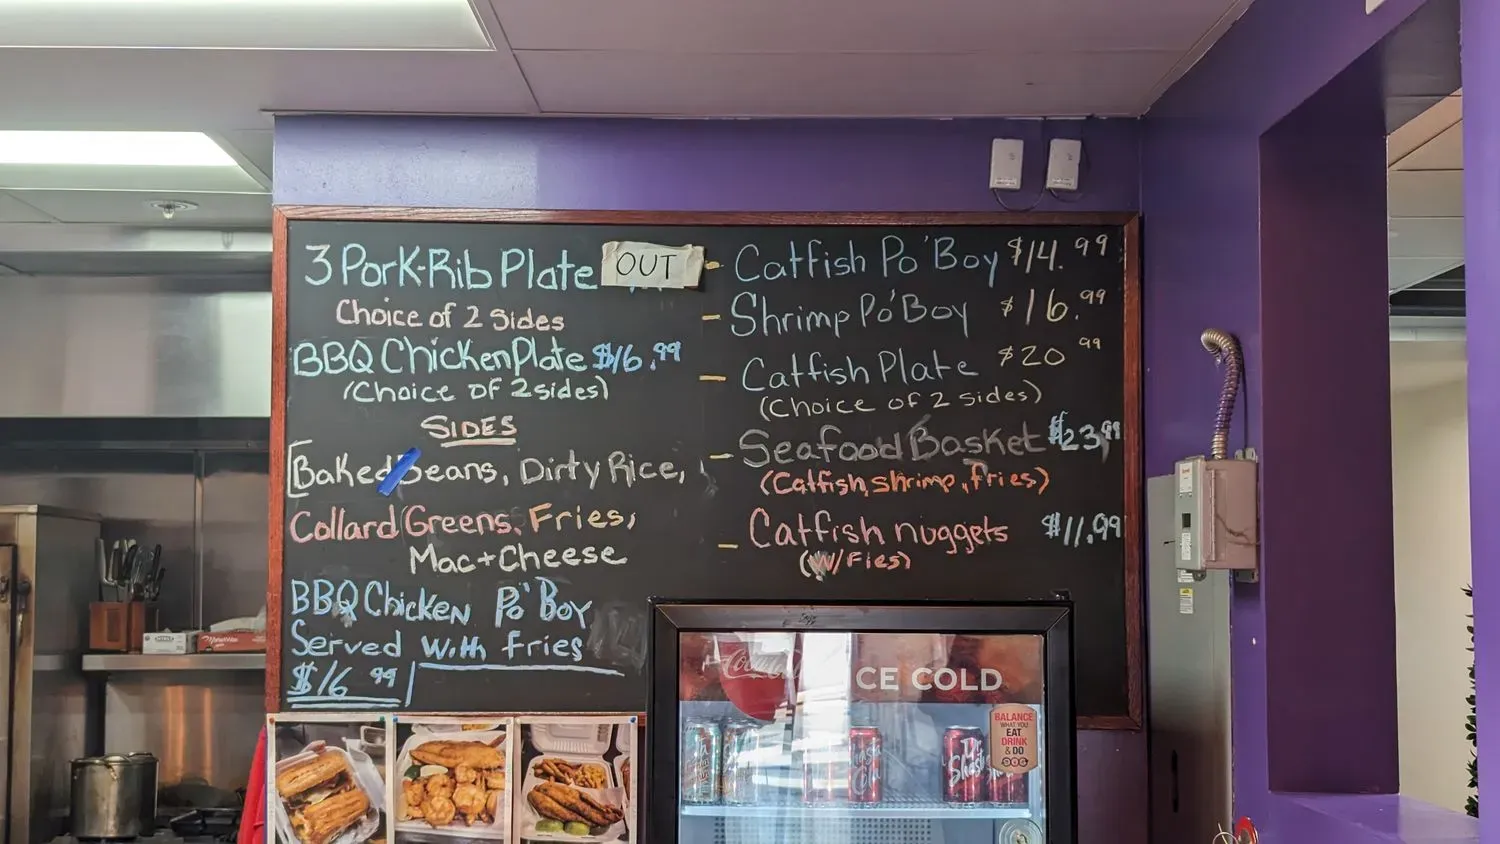 3 Pork-Rib Plate OUT
Choice of 2 Sides
BBQ Chicken Plate $16.99
(Choice of 2 sides)
SIDES
Baked Beans, Dirty Rice,
Collard Greens, Fries,
Mac + Cheese
BBQ Chicken Po' Boy
Served with fries
$16 99
- Catfish Po' Boy $14.99
- Shrimp Po' Boy $16.99
- Catfish Plate $20 99
(Choice of 2 sides)
- Seafood Basket $23,99
(Catfish, shrimp, fries)
- Catfish nuggets $11.99
(W/Fies)
Coca-Cola
CE COLD
BALANCE
WHAT YOU
EAT
DRINK
& DO